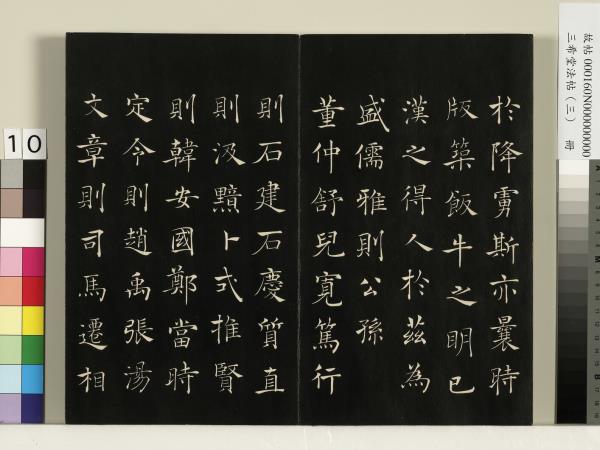 於降虜斯亦曩時
版築飯牛之明已
漢之得人於茲為
盛儒雅則公孫
董仲舒兒寬篤行
則石建石慶質直
則汲黯卜式推賢
則韓安國鄭當時
定令則趙禹張湯
文章則司馬遷相
故帖 000160N000000000
三希堂法帖（三） 冊
10